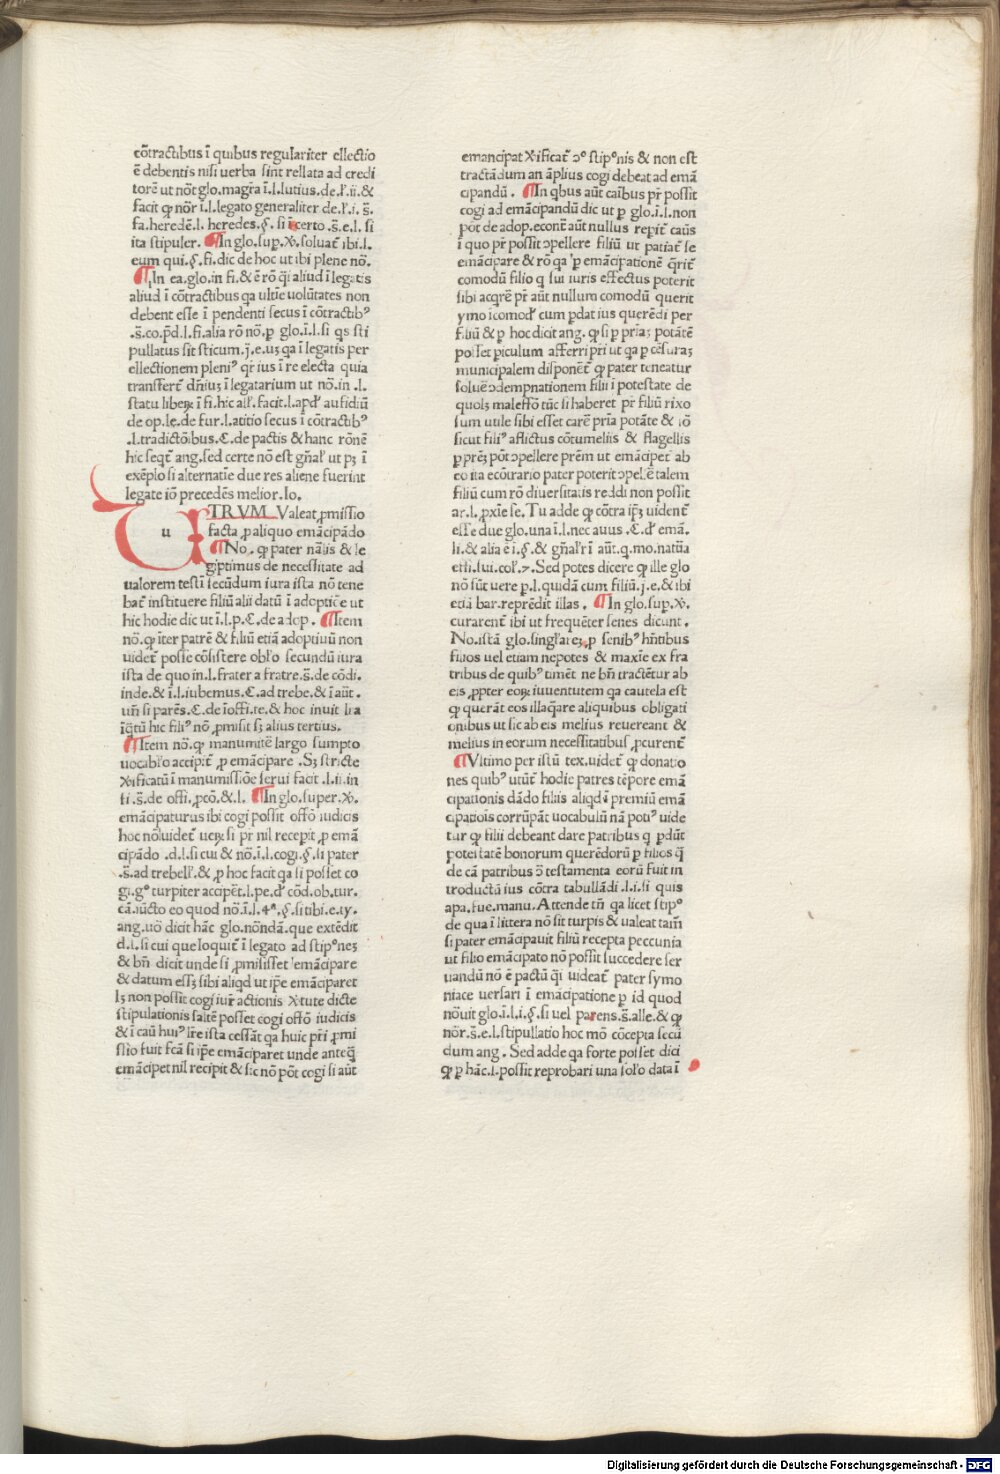 cōtractibus ī quibus regulariter ellectio
ē debentis nisi uerba sint rellata ad credi
torē ut nōt̄ glo.magr̄a ī.l.lutius.de.l̓.ii.&
facit ꝙ nōr̄ ī.l.legato generaliter de.l̓.i. s̄.
fa.heredē.l. heredes.§. si īcerto .s̄.e.l. si
ita stipuler. ¶In glo.sup̱.℣.soluat̄ ibi.l.
eum qui.§.fi.dic de hoc ut ibi plene nō.
¶In ea.glo.in fi.& ē rō q̄i aliud ī legatis
aliud ī cōtractibus qa ultīe uolūtates non
debent esse ī pendenti secus ī cōtractibꝰ
.s̄.co.p̄d.l.fi.alia rō nō.p̱ glo.ī.l.si qs sti
pullatus sit sticum.j.e.uꝫ qa ī legatis per
ellectionem pleniꝰ qr̄ ius ī re electa quia
transfert̄ dn̄iuꝫ ī legatarium ut nō.in .l.
statu libeꝝ ī fi.hic all̓. facit.l.apd̓ aufidiū
de op.le.de fur.l.atitio secus ī cōtractibꝰ
.l.traditiōibus.C.de pactis & hanc rōnē
hic seqt̄ ang.sed certe nō est gn̄al̓ ut pꝫ ī
exēplo si alternatīe due res aliene fuerint
legate iō precedēs melior.Io.
u TRVM Valeat ꝓmissio
facta ꝓ aliquo emācipādo
¶No. ꝙ pater nālis & le
giptimus de necessitate ad
ualorem testī secūdum iura ista nō tene
bat̄ instituere filiū alii datū ī adoptiōe ut
hic hodie dic ut ī.l.p.C.de adop. ¶Item
nō.ꝙ īter patrē & filiū etiā adoptiuū non
uidet̄ posse cōsistere obl̓o secundū iura
ista de quo in.l.frater a fratre.s̄.de cōdi.
inde.& ī.l.iubemus.C.ad trebe.& ī aūt.
un̄ si parēs.C.de īoffi.te.& hoc inuit l̓ra
īq̄tū hic filiꝰ nō ꝓmisit sꝫ alius tertius.
¶Item nō.ꝙ manumitē largo sumpto
uocabl̓o accipit̄ ꝓ emācipare .Sꝫ stricte
℣ificatū ī manumissiōe serui facit .l.ii.in
fi.s̄.de offi.ꝓcō.&.l. ¶In glo.super.℣.
emācipaturus ibi cogi possit offō iudicis
hoc nō uidet̄ ueꝝ si pr̄ nil recepit ꝓ emā
cipādo .d.l.si cui & nō.ī.l.cogi.§.si pater
.s̄.ad trebell̓.& p̱ hoc facit qa si posset co
gi.gº turpiter accipēt̄.l.pe.d̓ cōd.ob.tur.
cā.iūcto eo quod nō.ī.l.4ª.§.si tibi.e.ty.
ang.uō dicit hāc glo.nōndā.que extēdit
d.l.si cui que loquit̄ ī legato ad stipºneꝫ
& bn̄ dicit unde si ꝓmisisset emācipare
& datum essꝫ sibi aliqd ut ip̄e emāciparet
lꝫ non possit cogi iur̄ actionis ℣tute dicte
stipulationis saltē posset cogi offō iudicis
& ī caū huiꝰ lr̄e ista cessāt qa huic pr̄i ꝓmi
ssio fuit fcā si ip̄e emāciparet unde anteq̄
emācipet nil recipit & sic nō pōt cogi si aūt
emancipat ℣ificat̄ ꝯº stipºnis & non est
tractādum an āplius cogi debeat ad emā
cipandū. ¶In qbus aūt caībus pr̄ possit
cogi ad emācipandū dic ut p̱ glo.ī.l.non
pōt de adop.econt̄ aūt nullus repit̄ caūs
ī quo pr̄ possit ꝯpellere filiū ut patiat̄ se
emācipare & rō qa ꝑ emācipationē q̄rit̄
comodū filio q sui iuris effectus poterit
sibi acqr̄e pr̄ aūt nullum comodū querit
ymo īcomod̓ cum ꝑdat ius querēdi per
filiū & ꝑ hoc dicit ang. ꝙ si ꝑ priaꝫ potātē
posset ꝑiculum afferri pr̄i ut qa ꝑ cēsuraꝫ
municipalem disponēt̄ ꝙ pater teneatur
soluē ꝯdempnationem filii ī potestate de
quolꝫ maleffō tūc si haberet pr̄ filiū rixo
sum utile sibi esset carē pr̄ia potāte & iō
sicut filiꝰ aflictus cōtumeliis & flagellis
ꝑ prēꝫ pōt ꝯpellere prēm ut emācipet̄ ab
eo ita ecōtrario pater poterit ꝯpel̓ē talem
filiū cum rō diuersitatis reddi non possit
ar.l.ꝓxīe se. Tu adde ꝙ cōtra ip̄ꝫ uident̄
esse due glo.una ī.l.nec auus .C.d̓ emā.
li.& alia ē ī.§.& gn̄al̓r ī aūt.q.mo.natūa
effi.sui.col̓.7. Sed potes dicere ꝙ ille glo
nō sūt uere p̱.l.quidā cum filiū.j.e.& ibi
etiā bar.reprēdit illas. ¶In glo.sup̱.℣.
curarent̄ ibi ut frequēter senes dicunt.
No.istā glo.singl̓areꝫ ꝓ senibꝰ hn̄tibus
filios uel etiam nepotes & maxīe ex fra
tribus de quibꝰ timēt̄ ne bn̄ tractētur ab
eis ꝓpter eoꝝ iuuentutem qa cautela est
ꝙ querāt eos illaq̄are aliquibus obligati
onibus ut sic ab eis melius reuereant̄ &
melius in eorum necessitatibus ꝓcurent̄
¶Vltimo per istū tex.uidet̄ ꝙ donatio
nes quibꝰ utūt̄ hodie patres tēpore emā
cipationis dādo filiis aliqd ī premiū emā
cipatiōis corrūpāt uocabulū nā potiꝰ uide
tur ꝙ filii debeant dare patribus q ꝑdūt
potestatē bonorum querēdorū ꝑ filios q̄
de cā patribus ꝯ̄ testamenta eorū fuit in
troductā ius cōtra tabullādi .l.i.si quis
apa.fue.manu. Attende tn̄ qa licet stipº
de qua ī littera nō sit turpis & ualeat tam̄
si pater emācipauit filiū recepta peccunia
ut filio emācipato nō possit succedere ser
uandū nō ē pactū q̄i uideat̄ pater symo
niace uersari ī emācipatione ꝑ id quod
nōuit glo.ī.l.i.§.si uel parens.s̄.alle.& ꝙ
nōr̄.s̄.e.l.stipullatio hoc mō cōcepta secū
dum ang. Sed adde qa forte posset dici
ꝙ ꝑ hāc.l.possit reprobari una sol̓o data ī
Digitalisierung gefördert durch die Deutsche Forschungsgemeinschaft - DFG